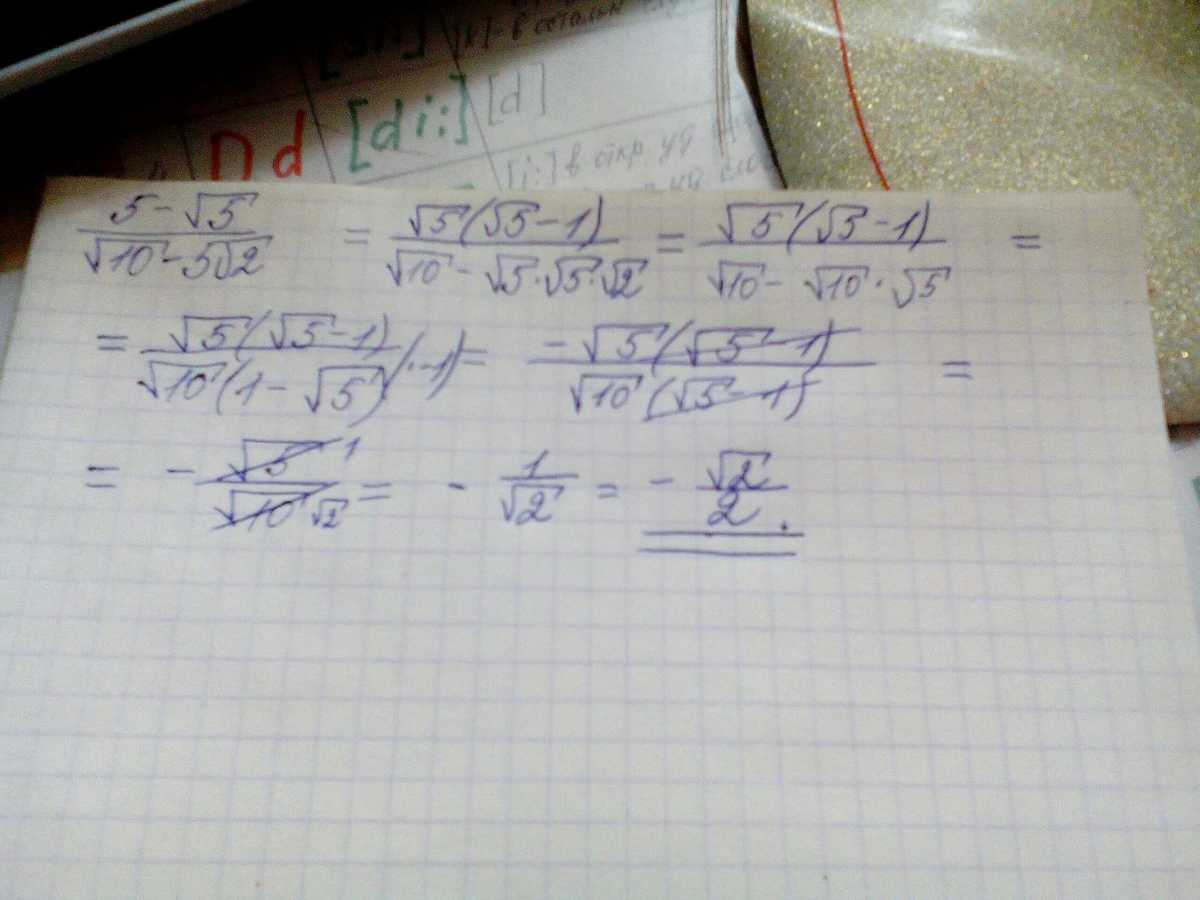 [k]-в
D d [di:] [d]
[i:] в откр.
\frac{5-\sqrt{5}}{\sqrt{10}-5\sqrt{2}} = \frac{\sqrt{5}(\sqrt{5}-1)}{\sqrt{10}-\sqrt{5}\cdot\sqrt{5}\cdot\sqrt{2}} = \frac{\sqrt{5}(\sqrt{5}-1)}{\sqrt{10}-\sqrt{10}\cdot\sqrt{5}} =
= \frac{\sqrt{5}(\sqrt{5}-1)}{\sqrt{10}(1-\sqrt{5})(\cdot-1)} = \frac{-\sqrt{5}(\sqrt{5}-1)}{\sqrt{10}(\sqrt{5}-1)} =
= -\frac{\sqrt{5} 1}{\sqrt{10} \sqrt{2}} = -\frac{1}{\sqrt{2}} = -\frac{\sqrt{2}}{2}.